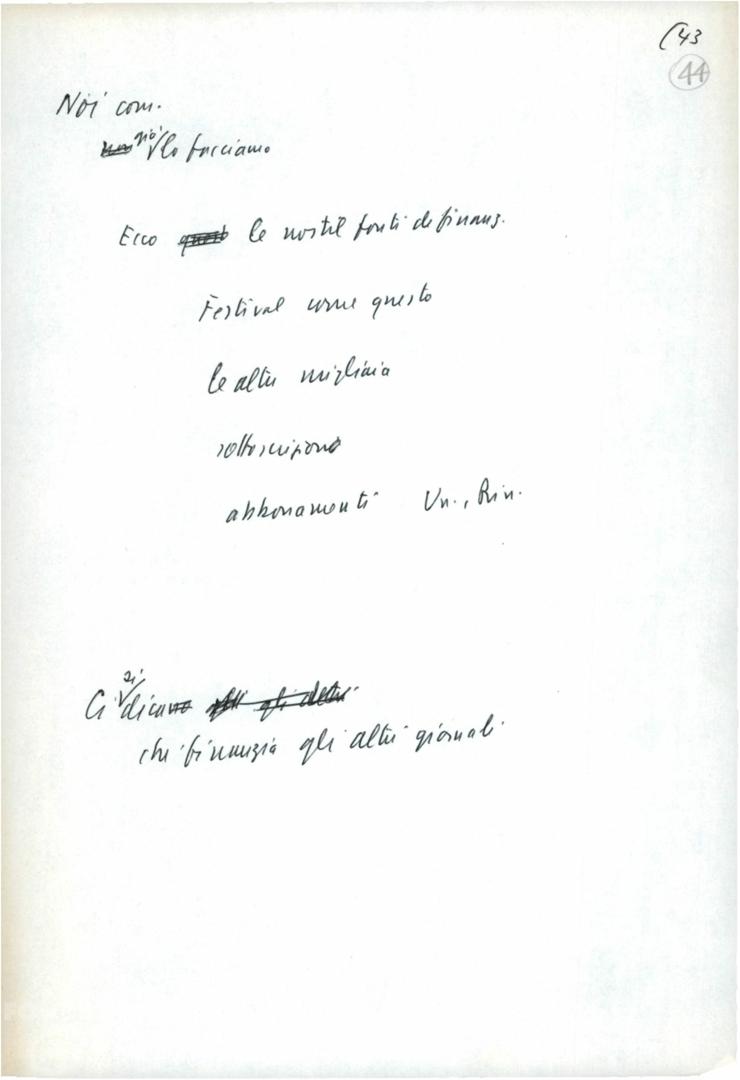 (43
44
Noi com.
già lo facciamo
Ecco le nostre fonti di finanz.
Festival come questo
le altre migliaia
sottoscrizione
abbonamenti Un., Rin.
Ci si dica
chi finanzia gli altri giornali